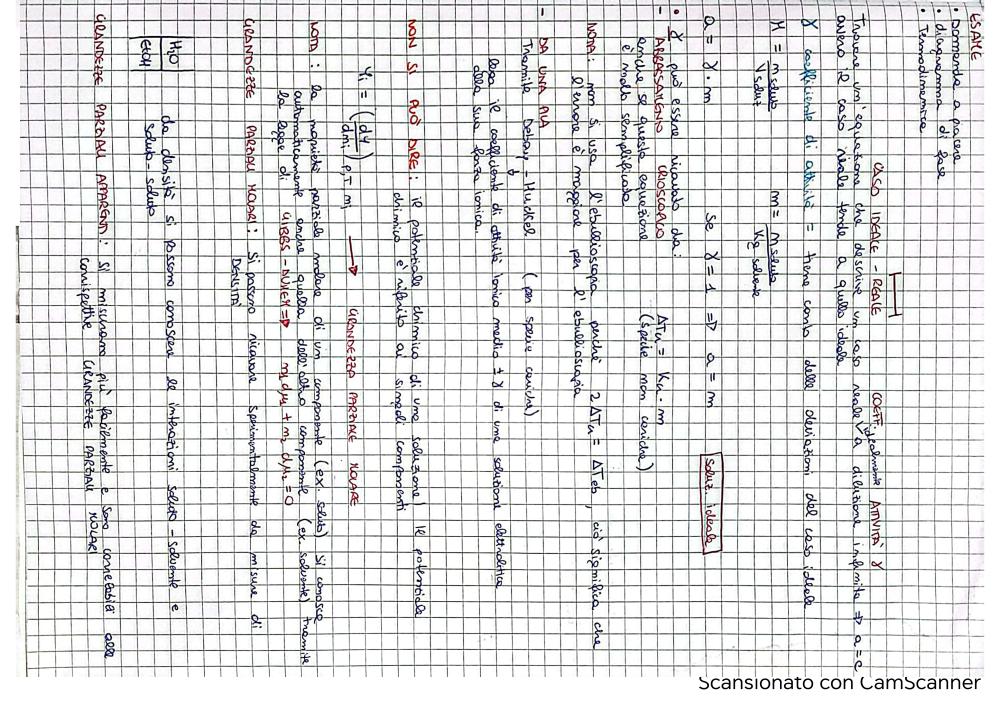 ESAME
• Domanda a piacere
• diagramma di fase
• Termodinamica
CASO IDEALE - REALE COEFF. ATTIVITÀ γ
idealmente
Trovare un'equazione che descrive un caso reale a diluizione infinita => a=c
ovvero il caso reale tende a quello ideale
γ coefficiente di attività = tiene conto delle deviazioni del caso ideale
M = n soluto / V soluz m = n soluto / Kg solvente
a = γ · m se γ = 1 => a = m Soluz. ideale
• γ può essere ricavato da:
- ABBASSAMENTO CRIOSCOPICO ΔTcr = Kcr · m
anche se questa equazione (specie non cariche)
è molto semplificata
NOTA: non si usa l'ebullioscopia perchè 2 ΔTcr = ΔTeb, ciò significa che
l'errore è maggiore per l'ebullioscopia
- DA UNA PILA
Tramite Debay - Huckel (per specie cariche)
lega il coefficiente di attività ionico medio ± γ di una soluzione elettrolitica
alla sua forza ionica.
NON SI PUÒ DIRE: il potenziale chimico di una soluzione! Il potenziale
chimico è riferito ai singoli componenti
Yi = (dY / dmi) P,T mj → GRANDEZZA PARZIALE MOLARE
NOTA: la proprietà parziale molare di un componente (ex. soluto) si conosce
automaticamente anche quella dell'altro componente (ex. solvente) tramite
la legge di GIBBS - DUHEM => n1 dμ1 + n2 dμ2 = 0
GRANDEZZE PARZIALI MOLARI: Si possono ricavare sperimentalmente da misure di
DENSITÀ
H2O da densità si possono conoscere le interazioni soluto - solvente e
EtOH soluto - soluto
GRANDEZZE PARZIALI APPARENTI: Si misurano più facilmente e sono correlabili alle
corrispettive GRANDEZZE PARZIALI MOLARI
Scansionato con CamScanner